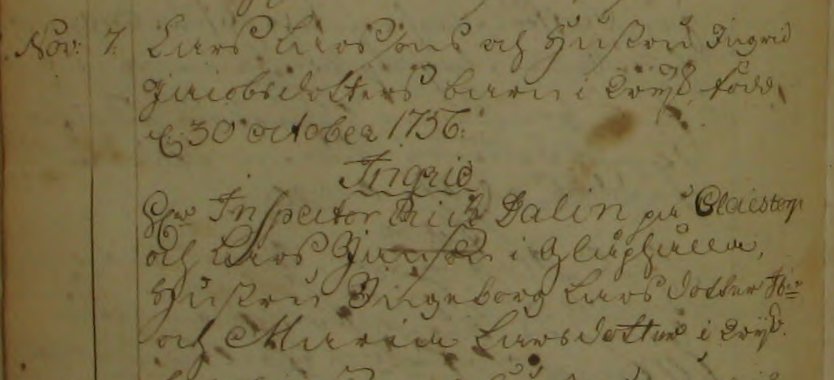 Nov: 7. Lars Larssons och Hustru Ingrid
Jacobsdotters barn i född
30 october 1756.
Ingrid
Inspector Dalin på Claestorp
och Lars Jansson i
Hustru Ingeborg Larsdotter
och Maria Larsdotter i